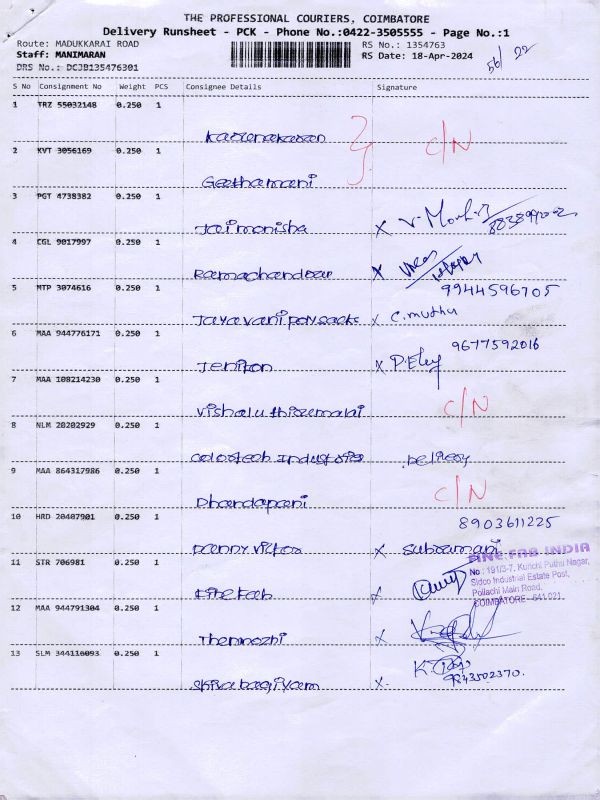 THE PROFESSIONAL COURIERS, COIMBATORE
Delivery Runsheet - PCK - Phone No.:0422-3505555 - Page No.:1
Route: MADUKKARAI ROAD RS No.: 1354763
Staff: MANIMARAN RS Date: 18-Apr-2024
DRS No.: DCJB135476301 56/ 22
S No Consignment No Weight PCS Consignee Details Signature
1 TRZ 55032148 0.250 1
Karunakaran C/N
2 KVT 3056169 0.250 1
Geethamani
3 PGT 4738382 0.250 1
Jaimonisha x
4 CGL 9017997 0.250 1
Ramachandran x
5 MTP 3074616 0.250 1 9944596705
Jayavani polysacks x C. muthu
6 MAA 944776171 0.250 1 9677592016
Jenifon x
7 MAA 108214230 0.250 1
Vishaluthirumani C/N
8 NLM 20202929 0.250 1
Colortech Industries
9 MAA 864317986 0.250 1
Dhandapani C/N
10 HRD 20407901 0.250 1 8903611225
Danny victor x Subramani
11 STR 706981 0.250 1 FINE FAB INDIA
No : 191/3-7, Kurichi Pudhu Nagar,
Sidco Industrial Estate Post,
Pollachi Main Road,
COIMBATORE - 641 021
x
12 MAA 944791304 0.250 1
Thenmozhi x
13 SLM 344116093 0.250 1
Shivabagiyam x